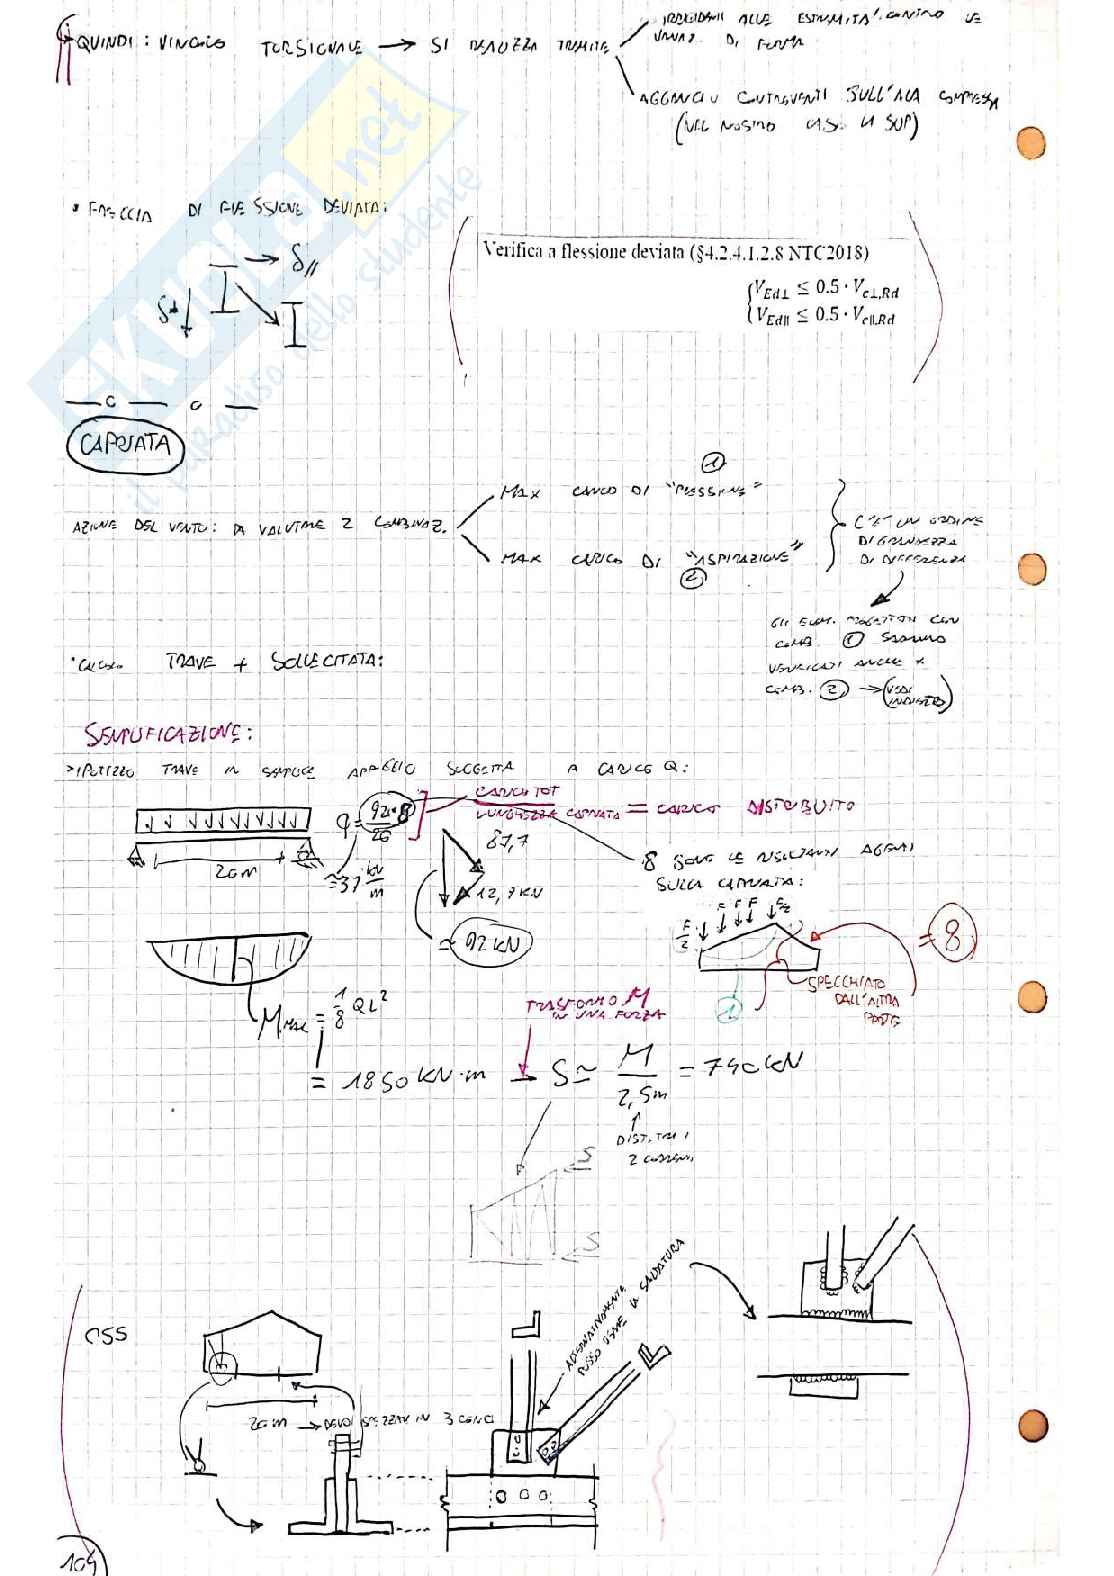 QUINDI: VINCOLO TORSIONALE → SI REALIZZA TRAMITE
IRRIGIDIM ALLE ESTREMITA' CONTRO LE
VARIAZ. DI FORMA
AGGANCIO CONTROVENTI SULL'ALA COMPRESSA
(NEL NOSTRO CASO LA SUP)
• FACCIA DI FLESSIONE DEVIATA:
δ//
δ⊥
Verifica a flessione deviata (§4.2.4.1.2.8 NTC2018)
V_Ed⊥ ≤ 0.5 · V_c⊥,Rd
V_Ed|| ≤ 0.5 · V_c||,Rd
CAPRIATA
①
MAX CARICO DI "PRESSIONE"
AZIONE DEL VENTO: DA VALUTARE 2 COMBINAZ.
MAX CARICO DI "ASPIRAZIONE"
②
C'E' UN ORDINE
DI GRANDEZZA
DI DIFFERENZA
GLI ELEM. PROGETTATI CON
COMB. ① SARANNO
VERIFICATI ANCHE X
COMB. ② → (VEDI
INDIETRO)
• CALCOLO TRAVE + SOLLECITATA:
SEMPLIFICAZIONE:
> IPOTIZZO TRAVE IN SEMPLICE APPOGGIO SOGGETTA A CARICO Q:
q = 92·8 / 20
CARICO TOT / LUNGHEZZA CAPRIATA = CARICO DISTRIBUITO
≈ 37 kN/m
20 m
87,7
12,7 KN
= 92 KN
8 SONO LE RISULTANTI AGENTI
SULLA CAPRIATA:
F/2 F F F F F/2
= 8
SPECCHIATO
DALL'ALTRA
PARTE
①
M MAX = 1/8 QL²
= 1850 KN·m
TRASFORMO M
IN UNA FORZA
→ S ≃ M / 2,5m = 740 KN
DIST. TRA I
2 CORRENTI
S
S
OSS
20 m → DEVO SPEZZARE IN 3 CONCI
ALTERNATIVAMENTE
POSSO USARE LA SALDATURA
104
il paradiso dello studente
SKUOLA.net